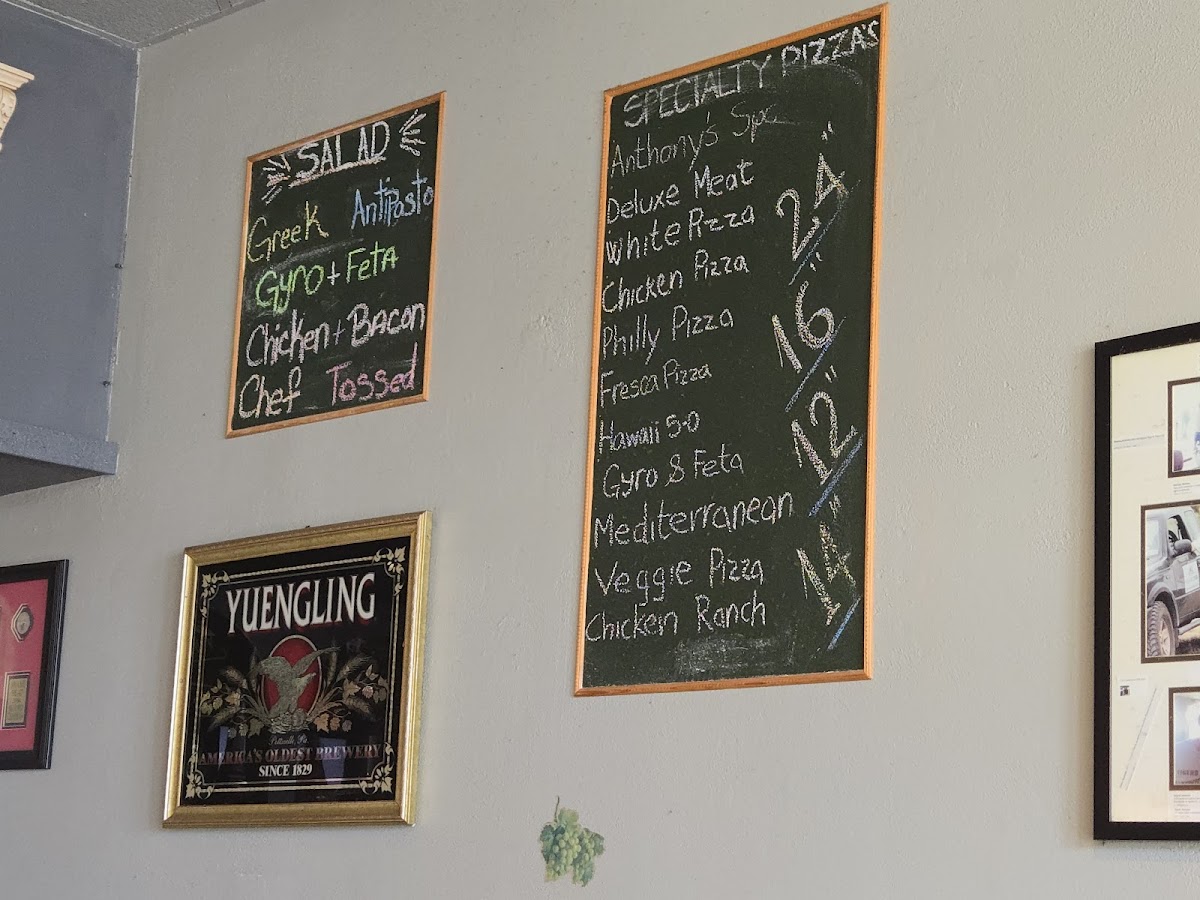 SALAD
Greek AntiPasto
Gyro + Feta
Chicken + Bacon
Chef Tossed
SPECIALTY PIZZA'S
Anthony's
Deluxe Meat
White Pizza
Chicken Pizza
Philly Pizza
Fresca Pizza
Hawaii 5-0
Gyro & Feta
Mediterranean
Veggie Pizza
Chicken Ranch
24"
16"
12"
14"
YUENGLING
Pottsville, Pa.
AMERICA'S OLDEST BREWERY
SINCE 1829